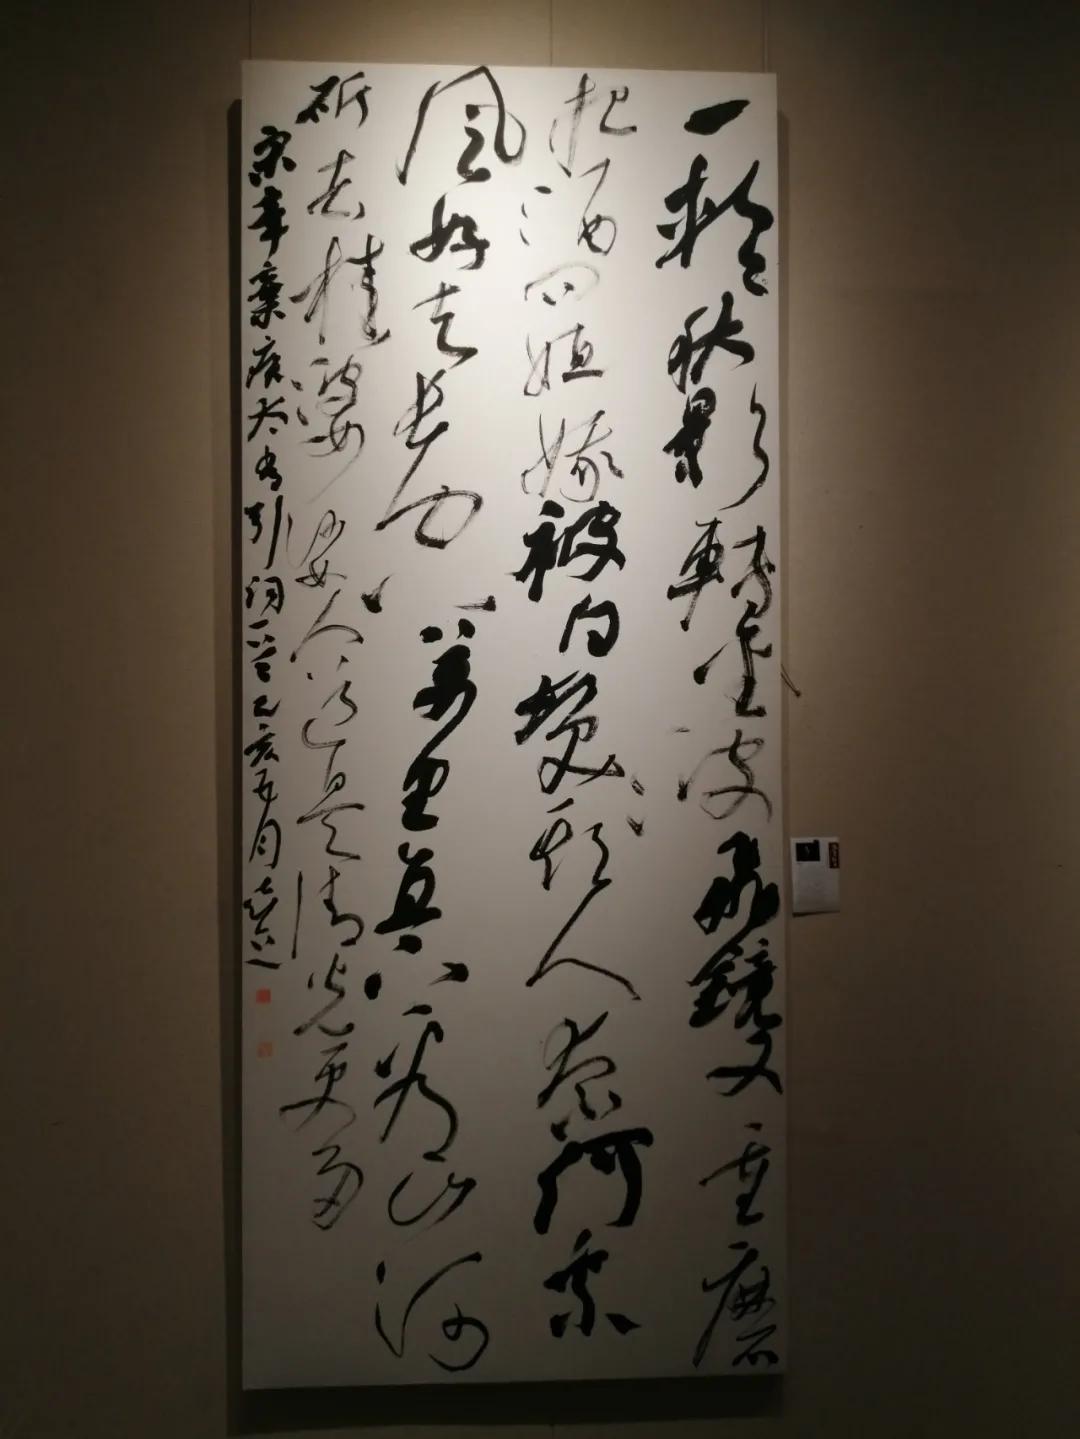 一輪秋影轉金波飛鏡又重磨
把酒问姮娥被白髮欺人奈何乘
風好去長空萬里直下看山河
斫去桂婆娑人道是清光更多
宋辛棄疾太常引詞一首己亥五月